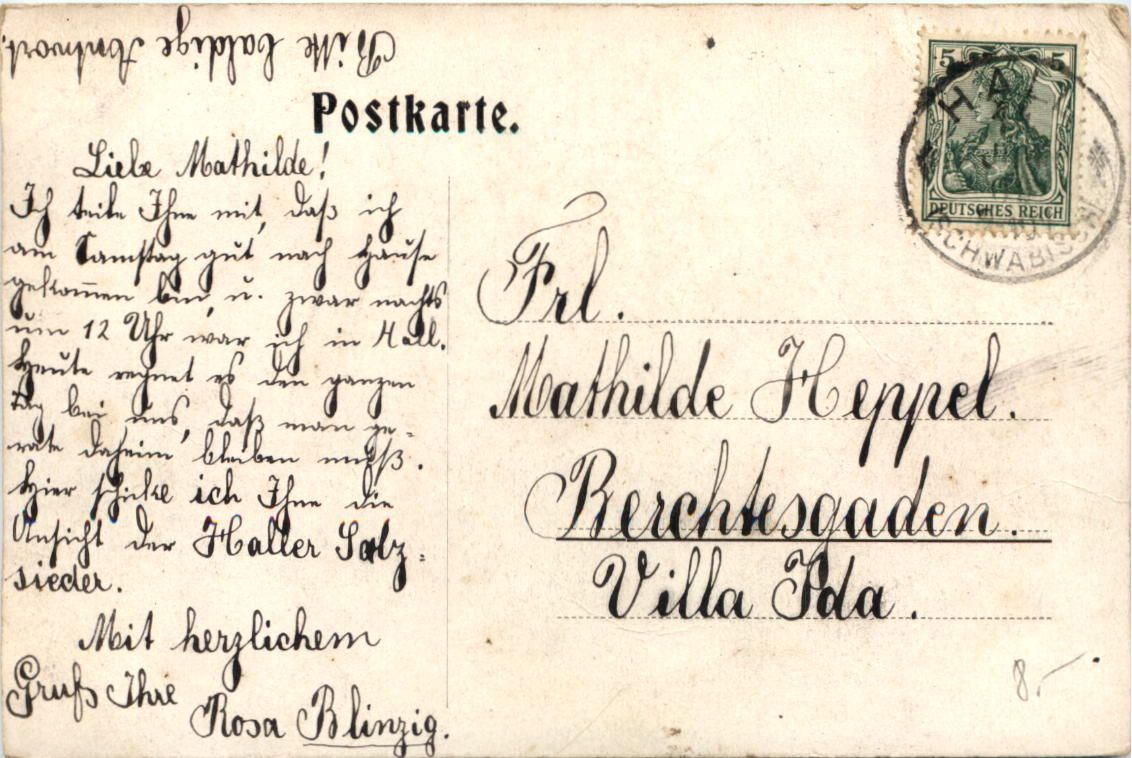 Bitte baldige Antwort.
Postkarte.
Liebe Mathilde!
Ich teile Ihne mit, daß ich
am Samstag gut nach Hause
gekommen bin, u. zwar nachts
um 12 Uhr war ich in Hall.
Heute regnet es den ganzen
Tag bei uns, daß man ge-
rate daheim bleiben muß.
Hier schicke ich Ihne die
Ansicht der Haller Salz-
sieder.
Mit herzlichem
Gruß Ihre
Rosa Blinzig.
5 5
DEUTSCHES REICH
HALL
SCHWÄBISCH
Frl.
Mathilde Heppel.
Berchtesgaden.
Villa Ida.
8.-